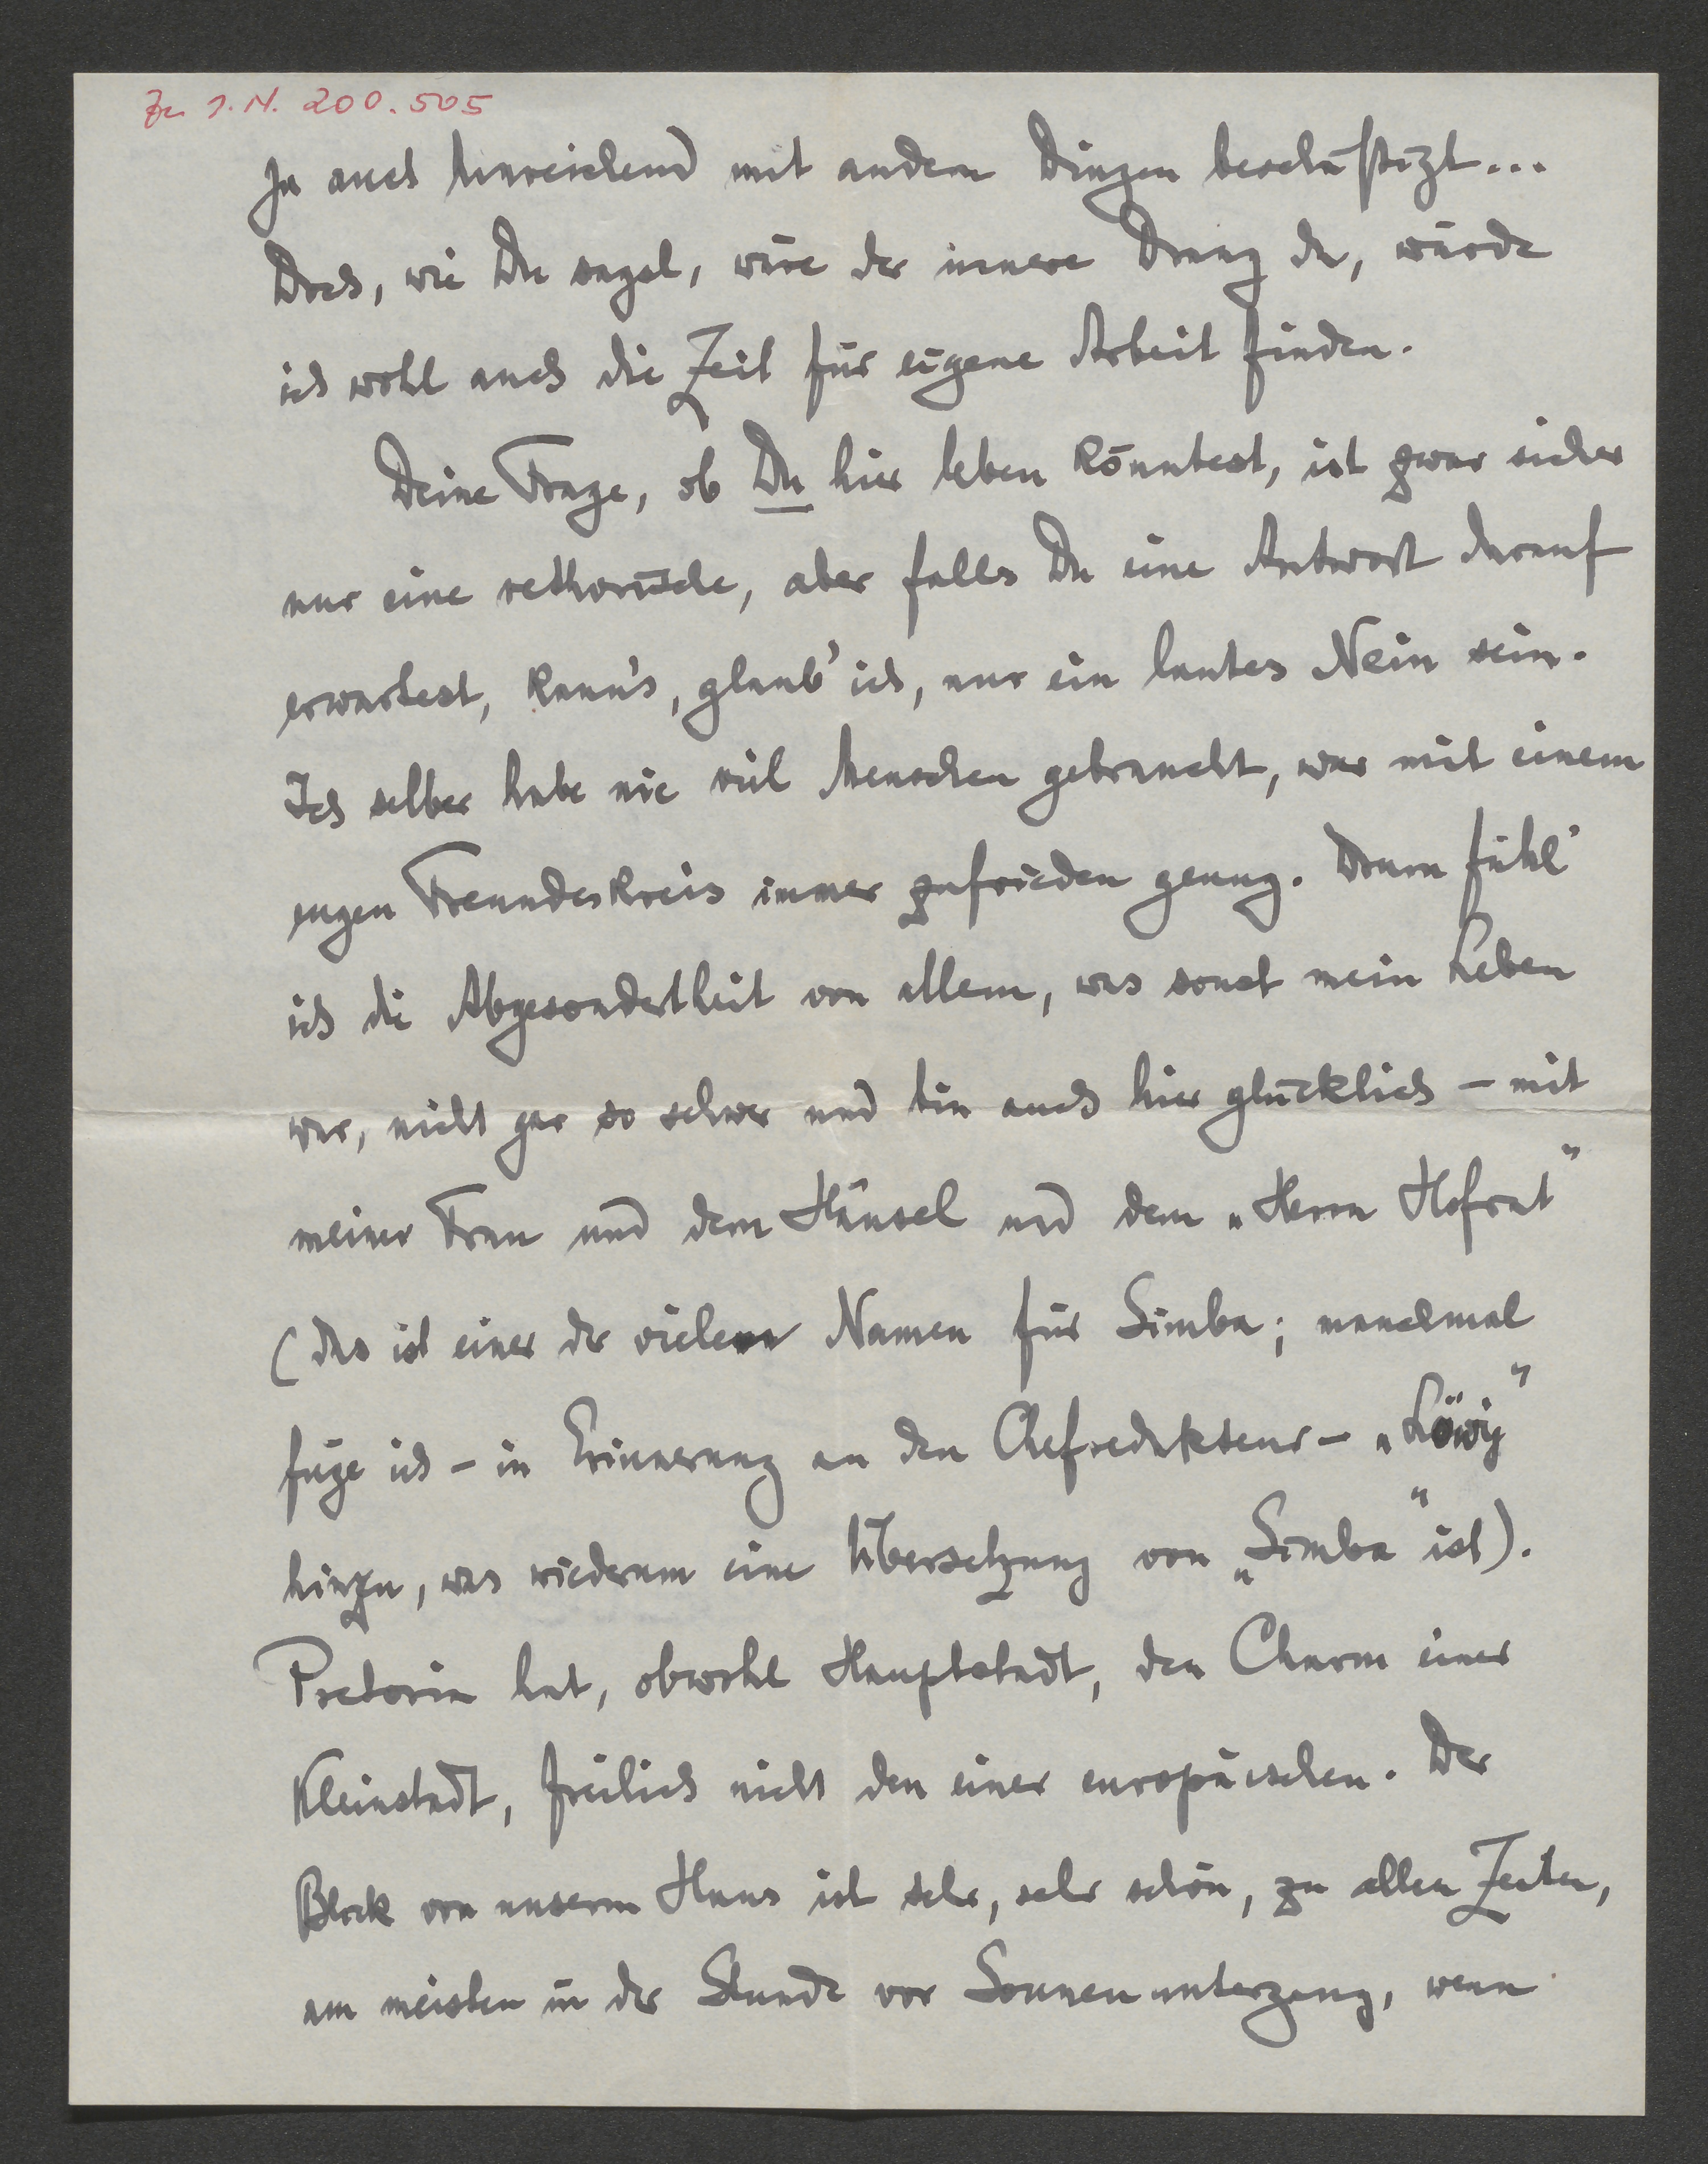 Zu I.N. 200.505
ja auch hinreichend mit andern Dingen beschäftigt...
Doch, wie Du sagst, wäre der innere Drang da, würde
ich wohl auch die Zeit für eigene Arbeit finden.
Deine Frage, ob Du hier leben könntest, ist zwar sicher
nur eine rethorische, aber falls Du eine Antwort darauf
erwartest, kann's, glaub' ich, nur ein lautes Nein sein.
Ich selber habe nie viel Menschen gebraucht, war mit einem
engen Freundeskreis immer zufrieden genug. Drum fühl'
ich die Abgesondertheit von allem, was sonst mein Leben
war, nicht gar so schwer und bin auch hier glücklich – mit
meiner Frau und dem Hänsel und dem „Herrn Hofrat"
(das ist einer der vielen Namen für Simba; manchmal
füge ich – in Erinnerung an den Chefredakteur – „Löwy"
hinzu, was wiederum eine Übersetzung von „Simba" ist).
Pretoria hat, obwohl Hauptstadt, den Charm einer
Kleinstadt, freilich nicht den einer europäischen. Der
Blick von unserm Haus ist sehr, sehr schön, zu allen Zeiten,
am meisten in der Stunde vor Sonnenuntergang, wenn